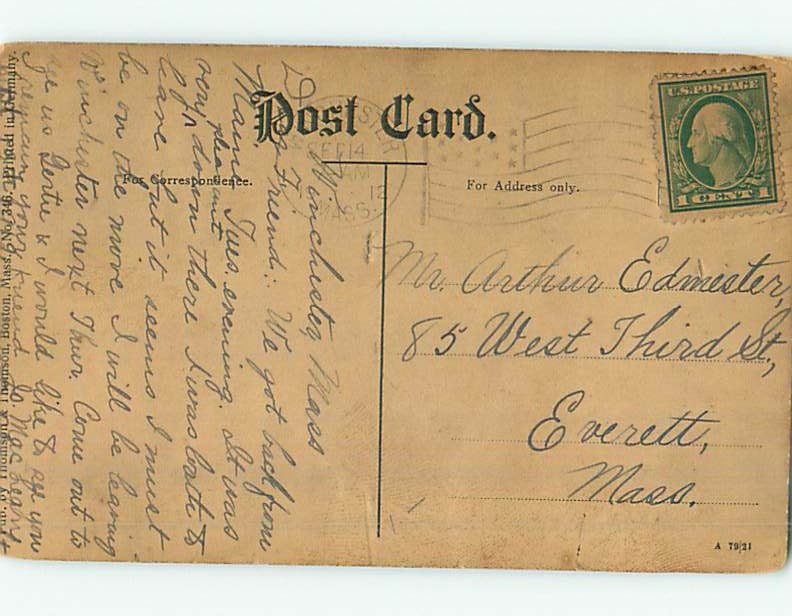 Post Card.
For Correspondence.
For Address only.
U.S. POSTAGE
1 CENT 1
SEP 14
AM
12
MASS.
Mr. Arthur Edmester,
85 West Third St,
Everett,
Mass.
Winchester, Mass
Friend: We got back from
Maine Tues evening. It was
very pleasant down there I was loath to
leave but it seems I must
be on the move I will be leaving
Winchester next Thur. Come out to
us Gertie & I would like to see you
your friend
Pub. by Thomson & Thomson, Boston, Mass. No. 346. Printed in Germany.
A 7921